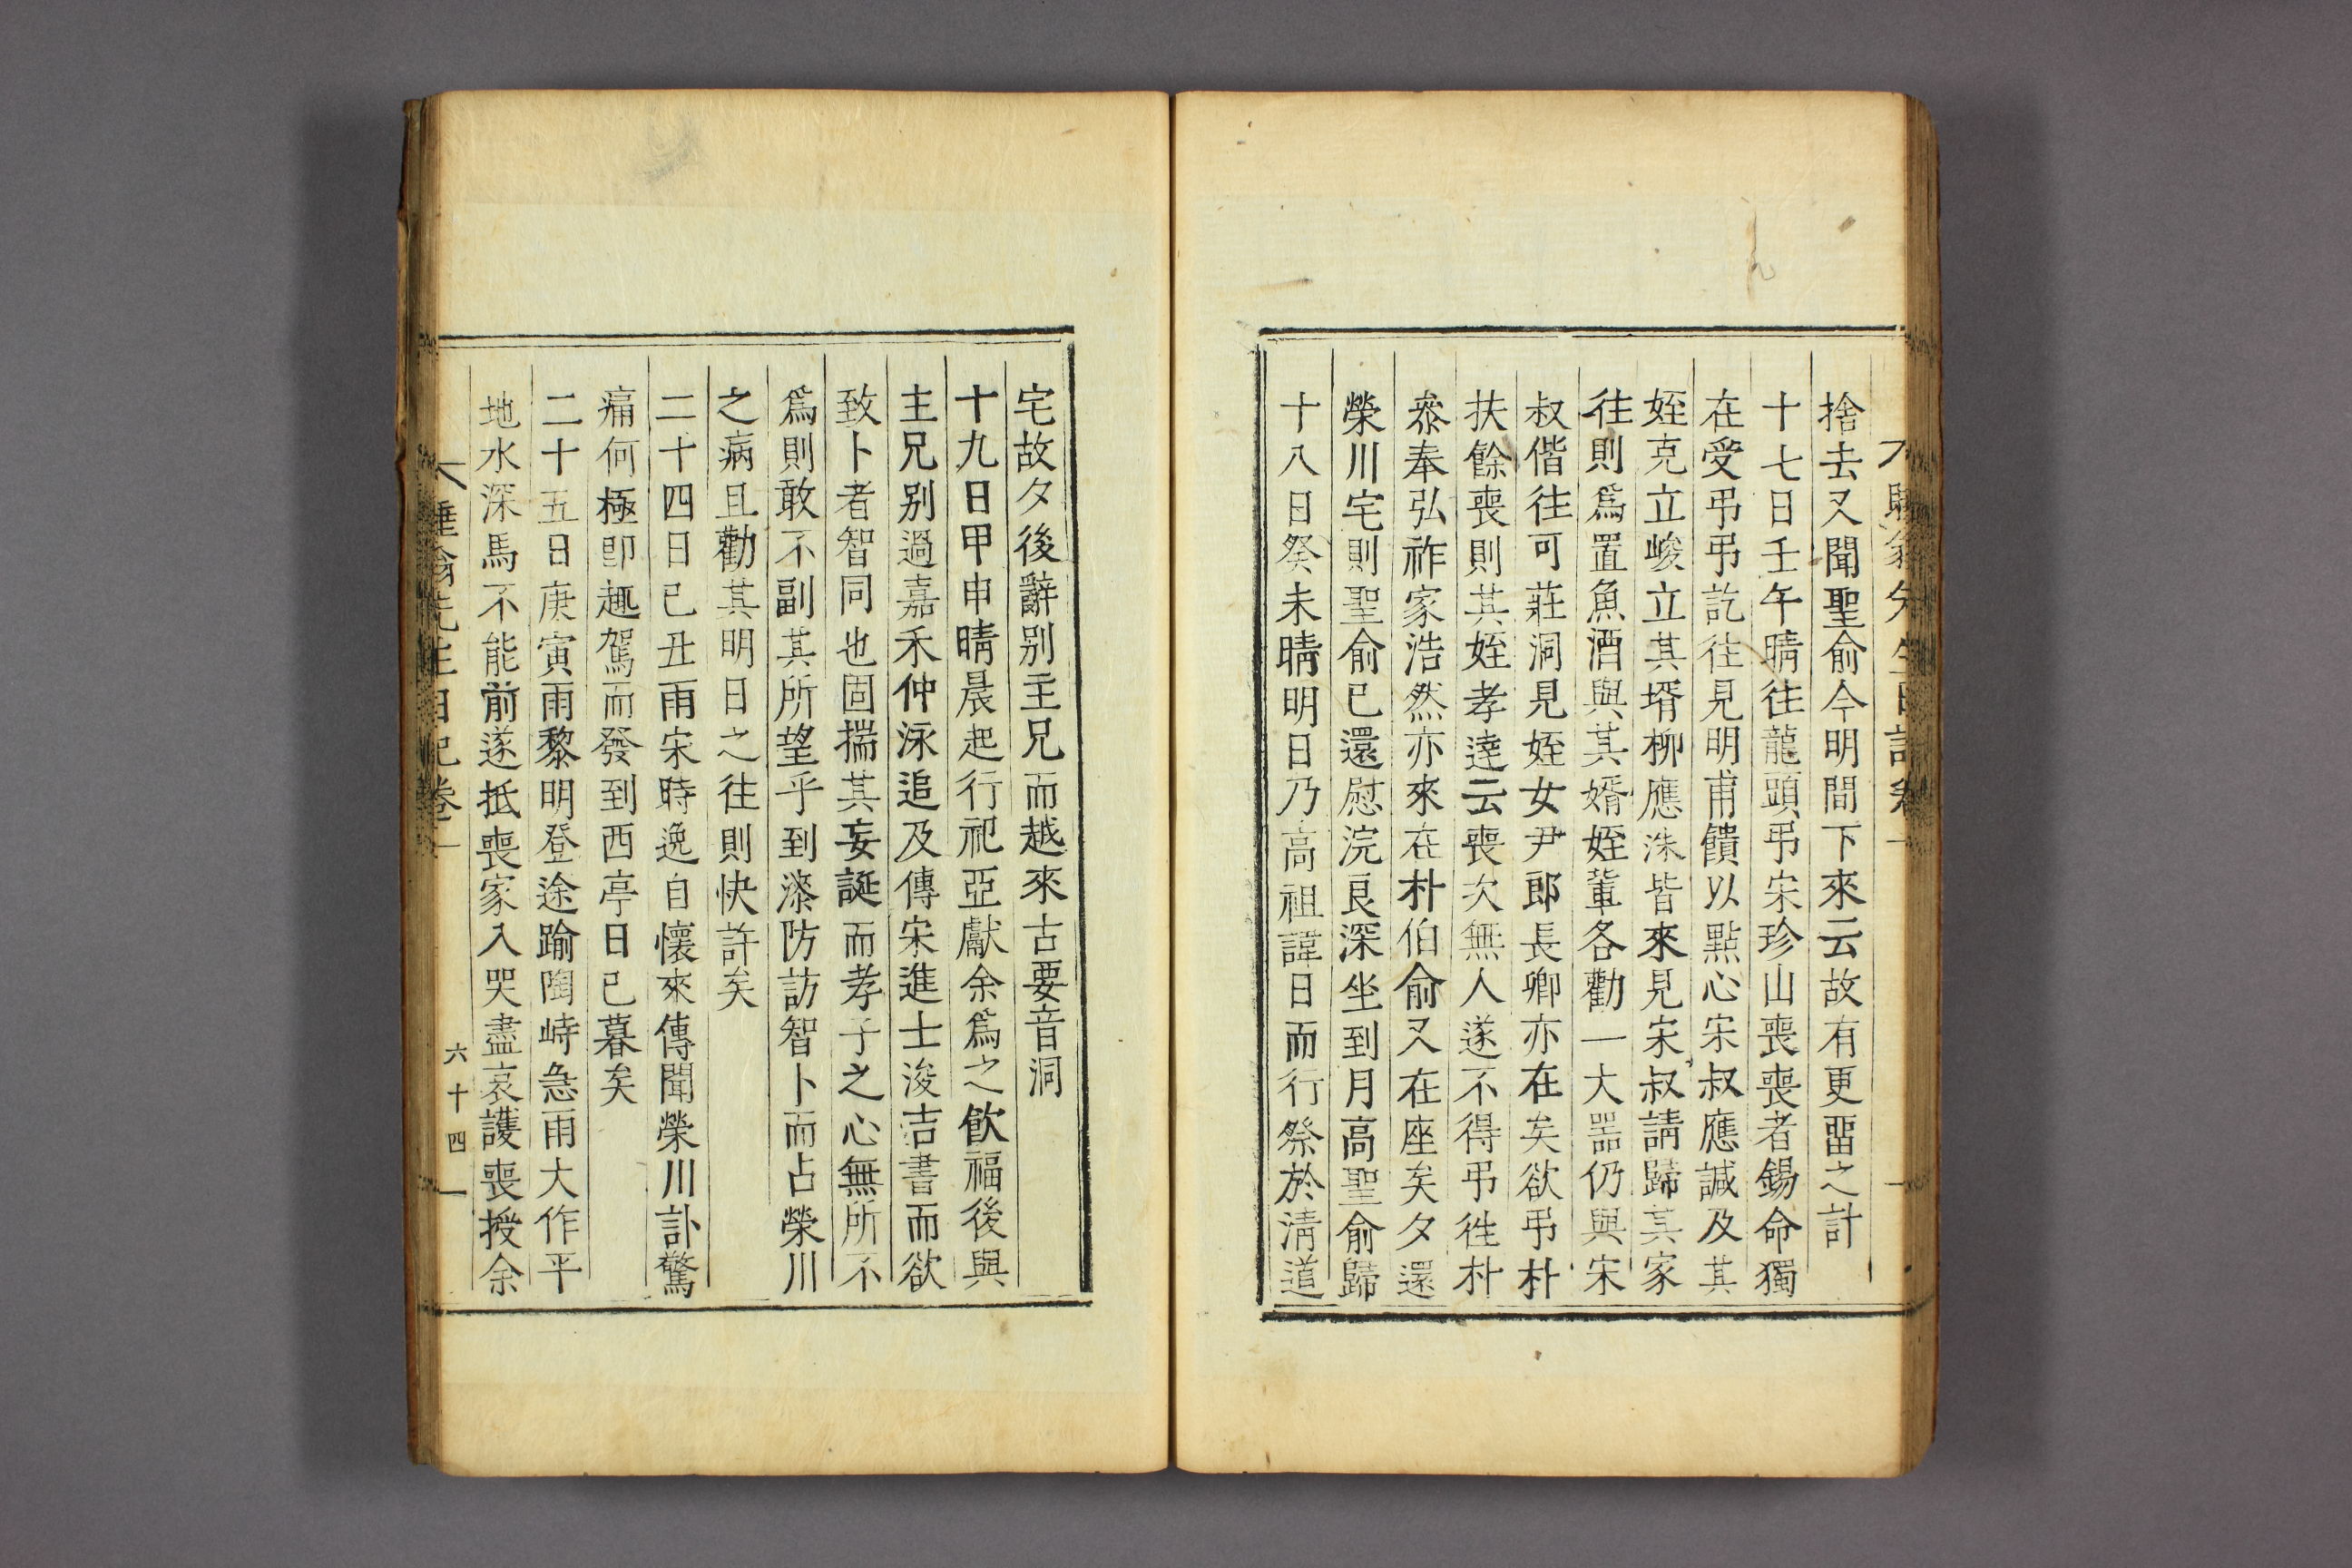 捨去又聞聖兪今明間下來云故有更畱之計
十七日壬午晴往龍頭弔宋珍山喪喪者錫命獨
在受弔弔訖往見明甫饋以點心宋叔應誠及其
姪克立峻立其壻柳應洙皆來見宋叔請歸其家
往則爲置魚酒與其婿姪輩各勸一大器仍與宋
叔偕往可莊洞見姪女尹郎長卿亦在矣欲弔朴
扶餘喪則其姪孝達云喪次無人遂不得弔徃朴
叅奉弘祚家浩然亦來在朴伯兪又在座矣夕還
榮川宅則聖兪已還慰浣良深坐到月高聖兪歸
十八日癸未晴明日乃高祖諱日而行祭於淸道
宅故夕後辭别主兄而越來古要音洞
十九日甲申晴晨起行祀亞獻余爲之飮福後與
主兄别過嘉禾仲泳追及傳宋進士浚吉書而欲
致卜者智同也固揣其妄誕而孝子之心無所不
爲則敢不副其所望乎到漆防訪智卜而占榮川
之病且勸其明日之往則快許矣
二十四日己丑雨宋時逸自懷來傳聞榮川訃驚
痛何極卽趣駕而發到西亭日已暮矣
二十五日庚寅雨黎明登途踰陶峙急雨大作平
地水深馬不能前遂抵喪家入哭盡哀護喪授余
先生日記卷一
六十四